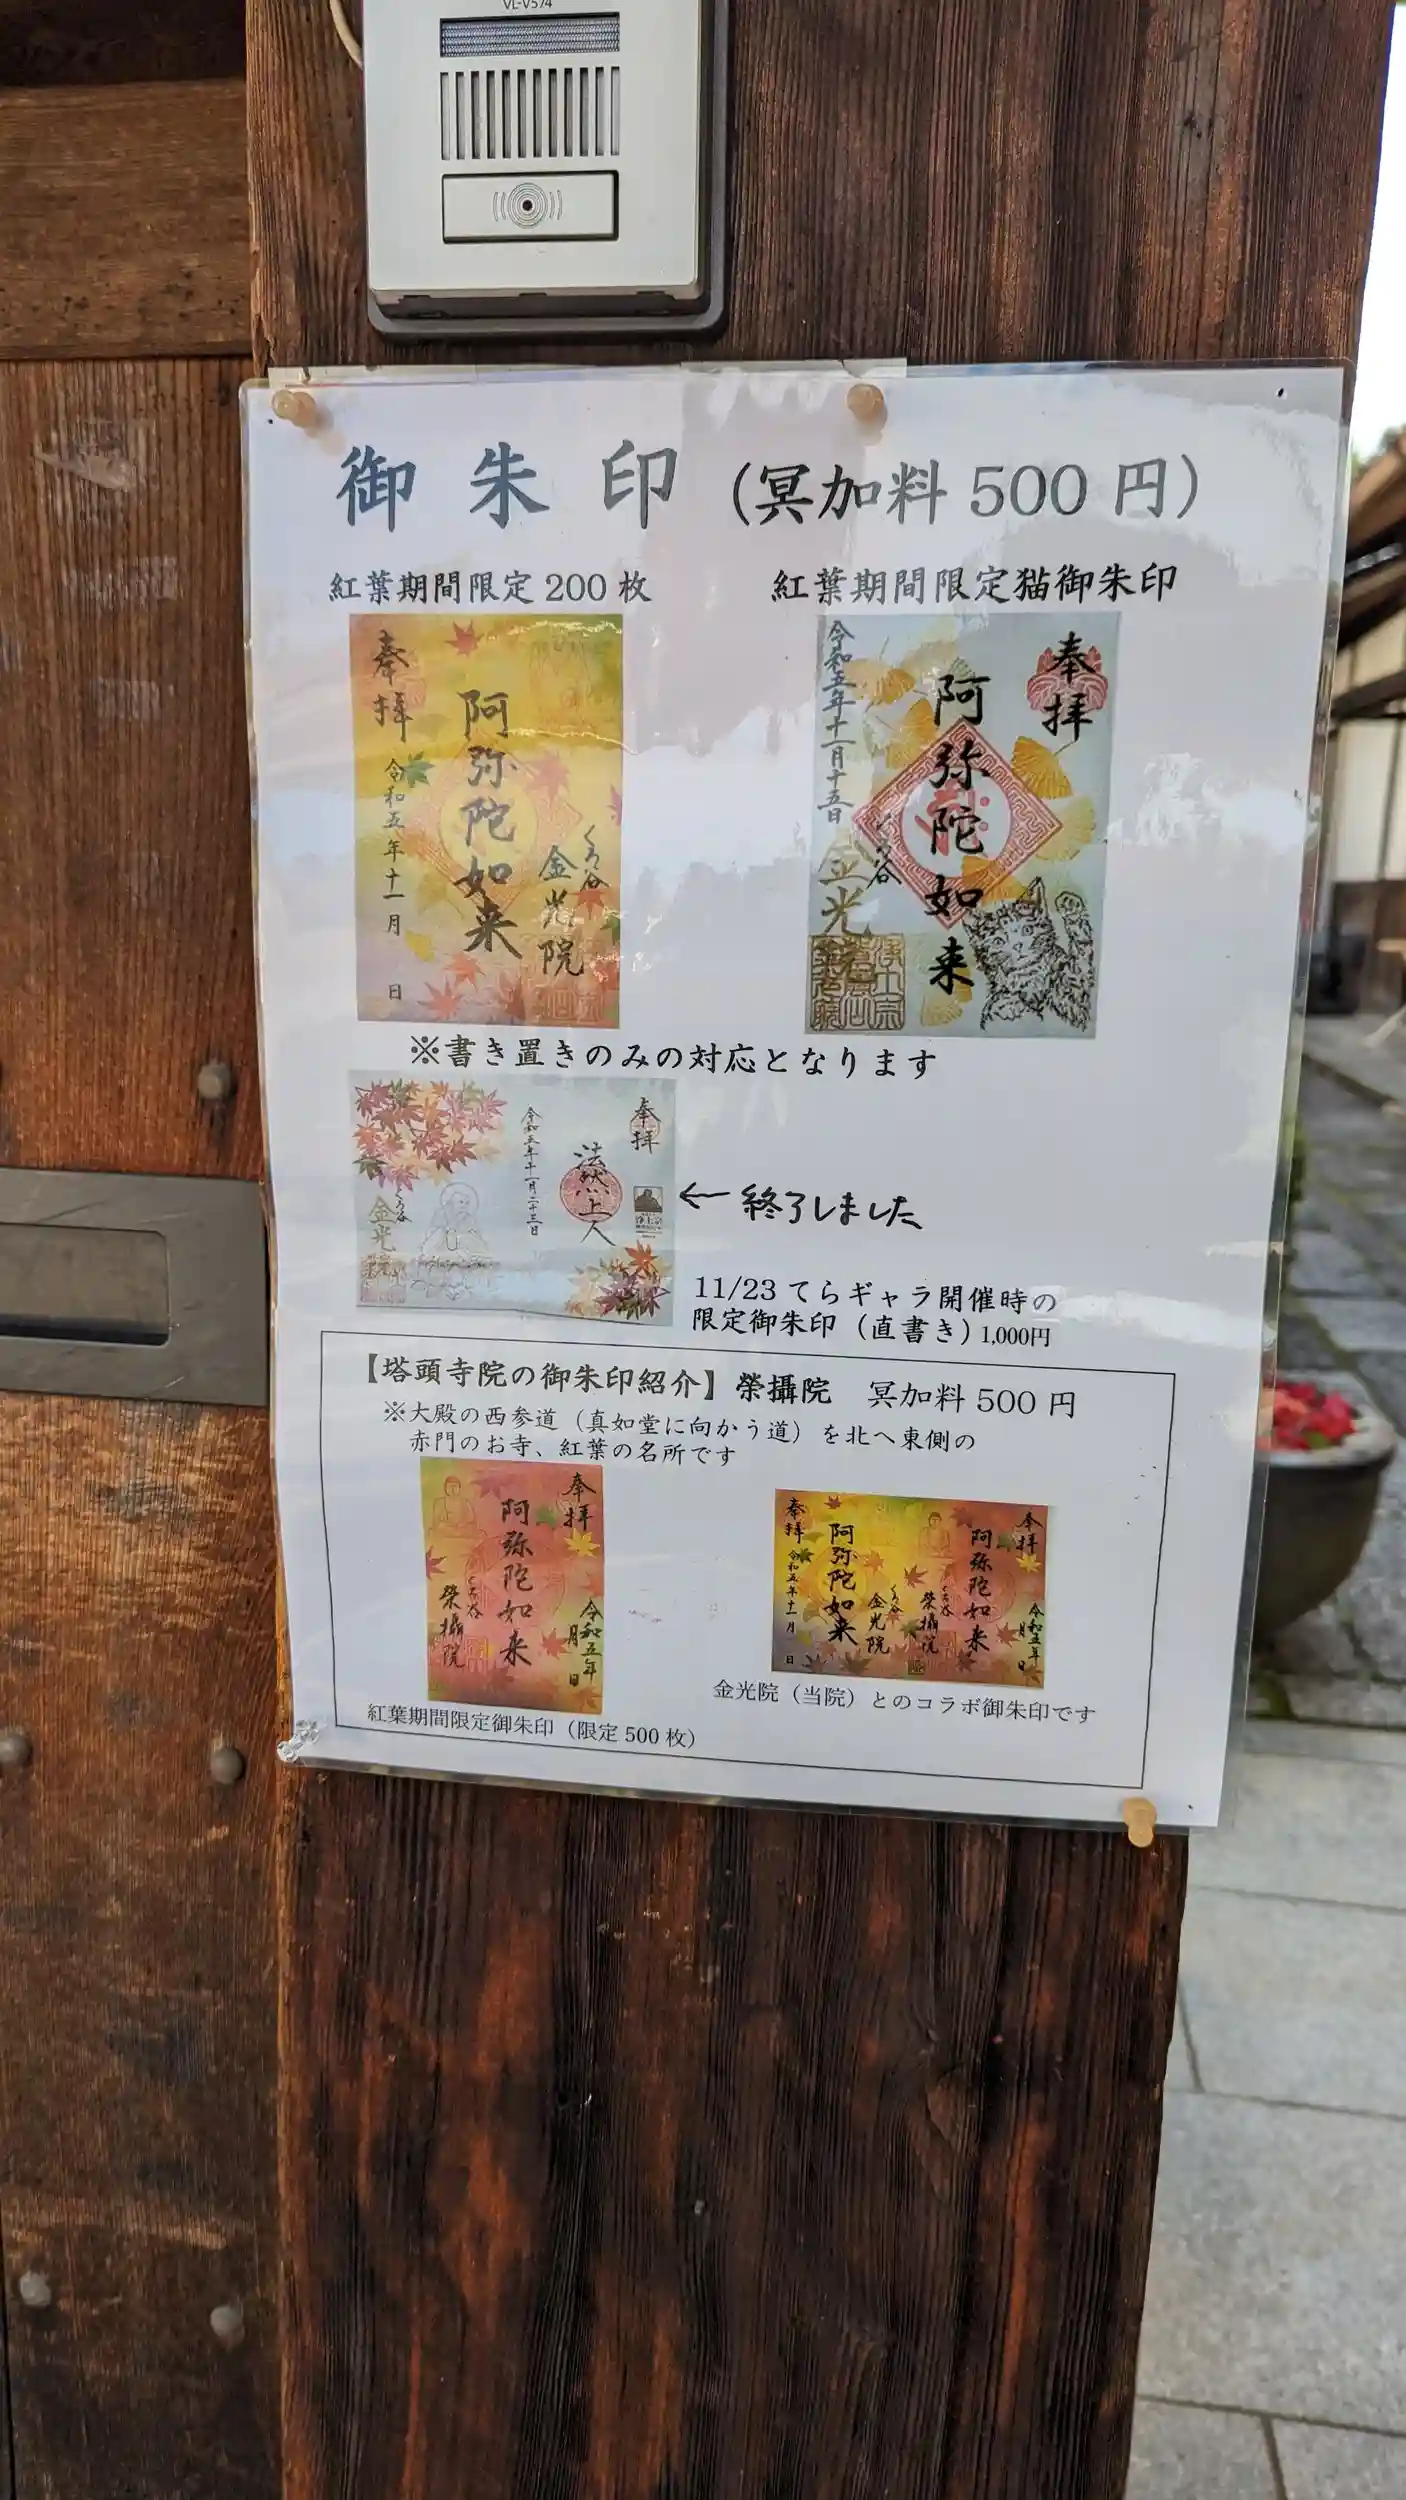 VL-V574
御朱印（冥加料 500 円）
紅葉期間限定 200 枚
紅葉期間限定猫御朱印
奉拝
阿弥陀如来
令和五年十一月 日
くろ谷
金光院
奉拝
阿弥陀如来
令和五年十一月十五日
くろ谷
金光
※書き置きのみの対応となります
奉拝
法然上人
令和五年十一月二十三日
くろ谷
金光
←終了しました
11/23 てらギャラ開催時の
限定御朱印（直書き）1,000円
【塔頭寺院の御朱印紹介】榮攝院 冥加料 500 円
※大殿の西参道（真如堂に向かう道）を北へ東側の
赤門のお寺、紅葉の名所です
奉拝
阿弥陀如来
令和五年 月 日
くろ谷
榮攝院
奉拝
阿弥陀如来
令和五年 月 日
くろ谷
榮攝院
奉拝
阿弥陀如来
令和五年十一月 日
くろ谷
金光院
紅葉期間限定御朱印（限定 500 枚）
金光院（当院）とのコラボ御朱印です